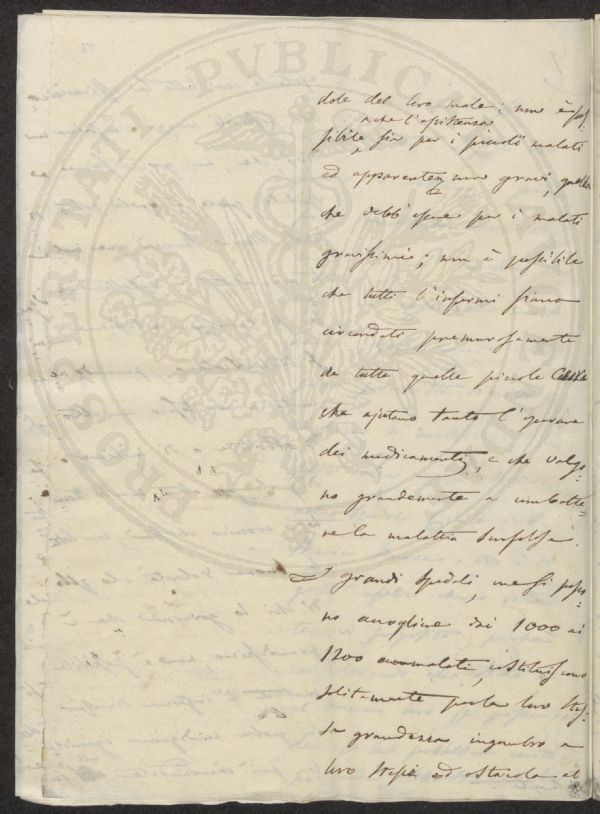 PROSPERITATI PUBLICAE AUGENDAE
dole del loro male: non è pos=
che l'assistenza
sibile sia per i piccoli malati
ed apparentem non gravi, quella
che debb'essere per i malati
gravissimi; non è possibile
che tutti l'infermi siano
circondati premurosamente
da tutte quelle piccole
che ajutano tanto l'operare
dei medicamenti, e che valgo=
no grandemente a combatte=
re la malattia
I grandi Spedali, ove si posso=
no accogliere dai 1000 ai
1200 ammalati, costituiscono
solitamente per la loro stes=
sa grandezza ingombro a
loro stessi ed ostacolo al